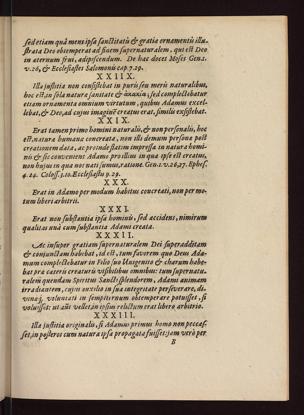 sed etiam quà mens ipsa sanctitatis & gratiæ ornamentis illu-
strata Deo obtemperat ad finem supernaturalem, qui est Deo
in æternum frui, adipiscendum. De hac docet Moses Gen. 1.
v. 26, & Ecclesiastes Salomonis cap. 7. 29.
XXIIX.
Illa justitia non consistebat in puris seu meris naturalibus,
hoc est, in sola naturæ sanitate &
etiam ornamenta omnium virtutum, quibus Adamus excel-
lebat, & Deo, ad cujus imaginẽ creatus erat, similis existebat.
XXIX.
Erat tamen primo homini naturalis, & non personalis, hoc
est, naturæ humanæ concreata, non illi demum personæ post
creationem data, ac proinde statim impressa in natura homi-
nis & sic conveniens Adamo prostius in qua ipse est creatus,
non hujus in qua nos nati sumus, ratione. Gen. 1. v. 26, 27. Ephes.
4. 24. Coloss. 3. 10. Ecclesiastes 7. 29.
XXX.
Erat in Adamo per modum habitus concreati, non per mo-
tum liberi arbitrii.
XXXI.
Erat non substantia ipsa hominis, sed accidens, nimirum
qualitas unà cum substantia Adami creata.
XXXII.
Ac insuper gratiam supernaturalem Dei superadditam
& conjunctam habebat, id est, tum favorem quo Deus Ada-
mum complectebatur in Filio suo Unigenito & charum habe-
bat præ cæteris creaturis visibilibus omnibus: tum supernatu-
ralem quendam Spiritus Sancti splendorem, Adami animam
irradiantem, cujus auxilio in sua integritate perseverare, di-
vinæq́; voluntati in sempiternum obtemperare potuisset, si
voluisset: ut aut vellet an ipsum relictum erat libero arbitrio.
XXXIII.
Illa justitia originalis, si Adamus primus homo non peccas-
set, in posteros cum natura ipsa propagata fuisset: jam verò per
B